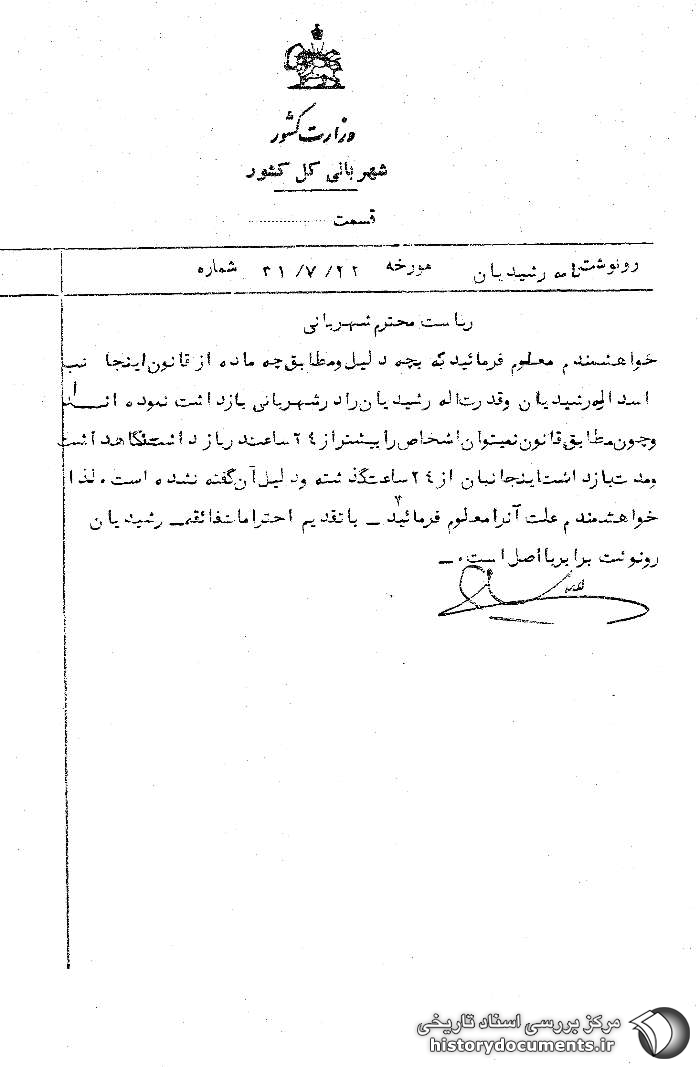 وزارت کشور
شهربانی کل کشور
قسمت
رونوشت نامه رشیدیان مورخه ۳۱/۷/۲۲ شماره
ریاست محترم شهربانی
خواهشمندم معلوم فرمائید که بچه دلیل و مطابق چه ماده از قانون اینجا نب
اسداله رشیدیان و قدرت اله رشیدیان را در شهربانی بازداشت نموده اند
و چون مطابق قانون نمیتوان اشخاص را بیشتر از ۲۴ ساعت در بازداشت نگاهداشت
و مدت بازداشت اینجانبان از ۲۴ ساعت گذشته و دلیل آن گفته نشده است، لذا
خواهشمندم علت آنرا معلوم فرمائید - با تقدیم احترامات فائقه رشیدیان
رونوشت برابر با اصل است. -
مرکز بررسی اسناد تاریخی
historydocuments.ir